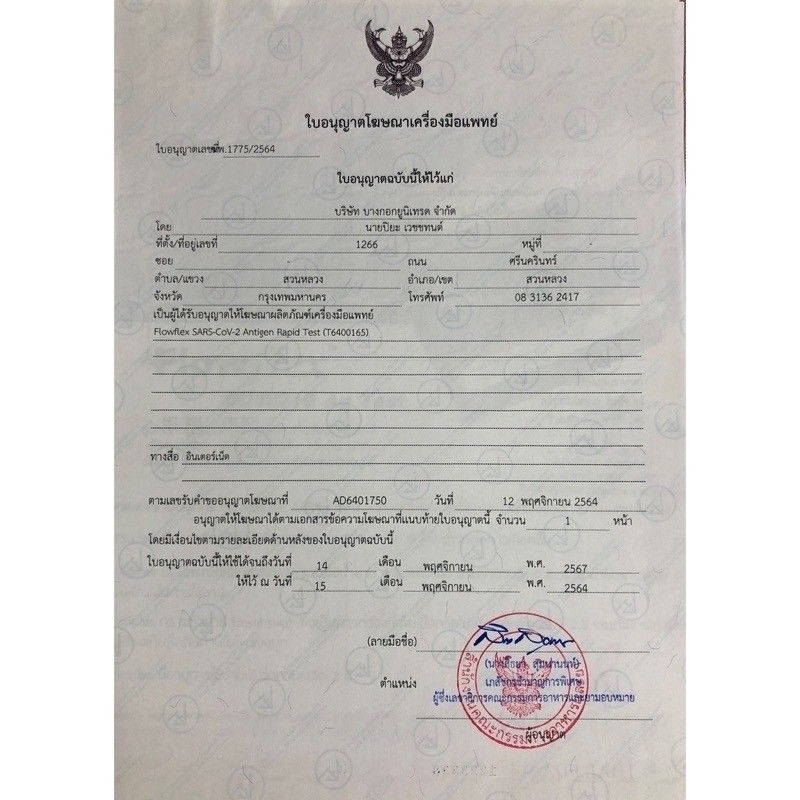 ใบอนุญาตโฆษณาเครื่องมือแพทย์
ใบอนุญาตเลขที่ ฆพ.1775/2564
ใบอนุญาตฉบับนี้ให้ไว้แก่
บริษัท บางกอกยูนิเทรด จำกัด
โดย นายปิยะ เวชชทนต์
ที่ตั้ง/ที่อยู่เลขที่ 1266 หมู่ที่ -
ซอย - ถนน ศรีนครินทร์
ตำบล/แขวง สวนหลวง อำเภอ/เขต สวนหลวง
จังหวัด กรุงเทพมหานคร โทรศัพท์ 08 3136 2417
เป็นผู้ได้รับอนุญาตให้โฆษณาผลิตภัณฑ์เครื่องมือแพทย์
Flowflex SARS-CoV-2 Antigen Rapid Test (T6400165)
ทางสื่อ อินเตอร์เน็ต
ตามเลขรับคำขออนุญาตโฆษณาที่ AD6401750 วันที่ 12 พฤศจิกายน 2564
อนุญาตให้โฆษณาได้ตามเอกสารข้อความโฆษณาที่แนบท้ายใบอนุญาตนี้ จำนวน 1 หน้า
โดยมีเงื่อนไขตามรายละเอียดด้านหลังของใบอนุญาตฉบับนี้
ใบอนุญาตฉบับนี้ให้ใช้ได้จนถึงวันที่ 14 เดือน พฤศจิกายน พ.ศ. 2567
ให้ไว้ ณ วันที่ 15 เดือน พฤศจิกายน พ.ศ. 2564
(ลายมือชื่อ)
ตำแหน่ง เภสัชกรชำนาญการพิเศษ
ผู้ซึ่งเลขาธิการคณะกรรมการอาหารและยามอบหมาย
ผู้อนุญาต
สำนักงานคณะกรรมการอาหารและยา